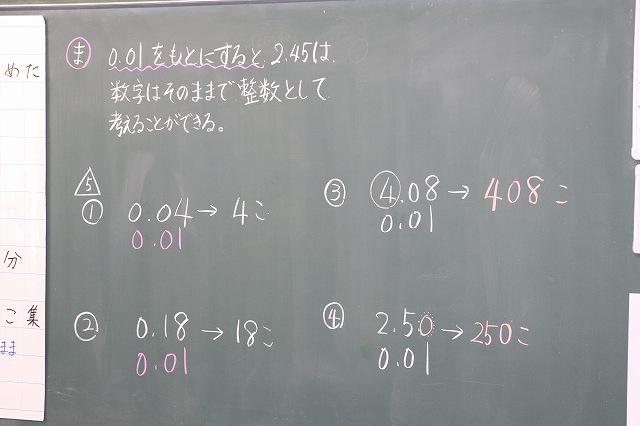 めた
分
こ集
まま
ま 0.01をもとにすると 2.45は、
数字はそのままで整数として
考えることができる。
5
① 0.04→4こ
0.01
② 0.18→18こ
0.01
③ 4.08→408こ
0.01
④ 2.50→250こ
0.01